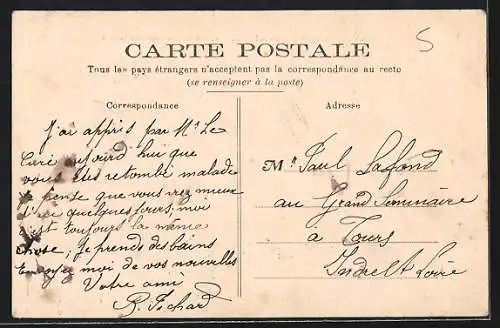 5
CARTE POSTALE
Tous les pays étrangers n'acceptent pas la correspondance au recto
(se renseigner à la poste)
Correspondance
J'ai appris par Mr Le
Curé aujourd hui que
vous êtes retombé malade
je pense que vous irez mieux
d'ici quelques jours, moi
c'est toujours la même
chose, je prends des bains
Envoyez moi de vos nouvelles
Votre ami
R. Pichard
Adresse
Mr Paul Lafond
au Grand Séminaire
à Tours
Indre et Loire